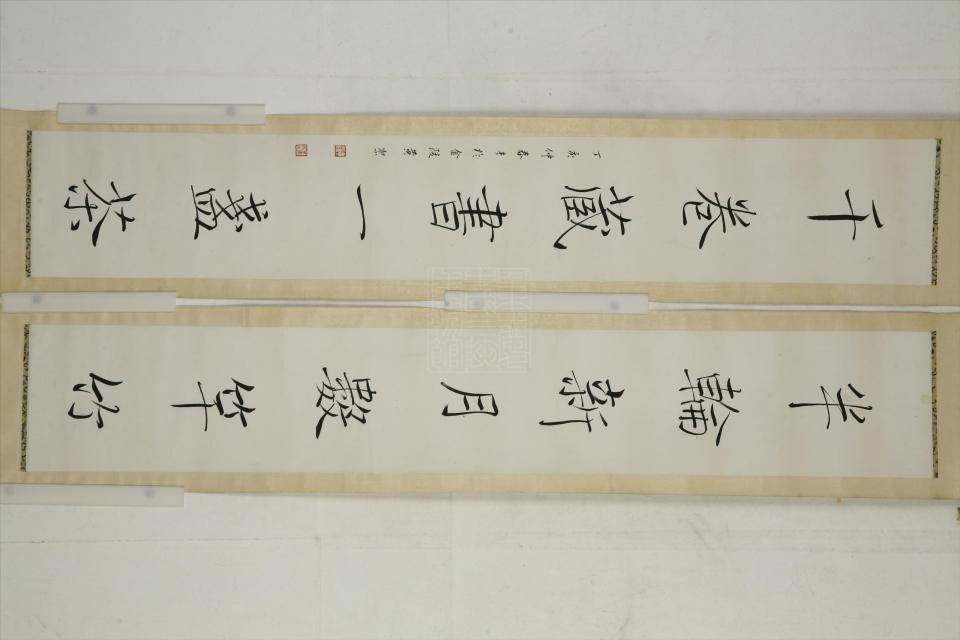 半輪新月數竿竹
千卷藏書一盞茶
丁亥仲春 於金陵黃